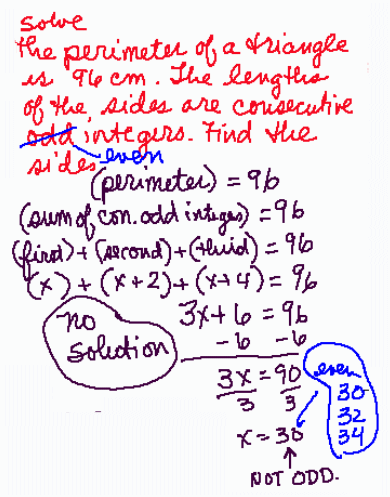 Solve
The perimeter of a triangle
is 96 cm. The lengths
of the sides are consecutive
odd integers. Find the
even
sides
(perimeter) = 96
(sum of con. odd integers) = 96
(first) + (second) + (third) = 96
(x) + (x+2) + (x+4) = 96
no
solution
3x + 6 = 96
-6 -6
3x = 90
3 3
x = 30
NOT ODD.
even
30
32
34